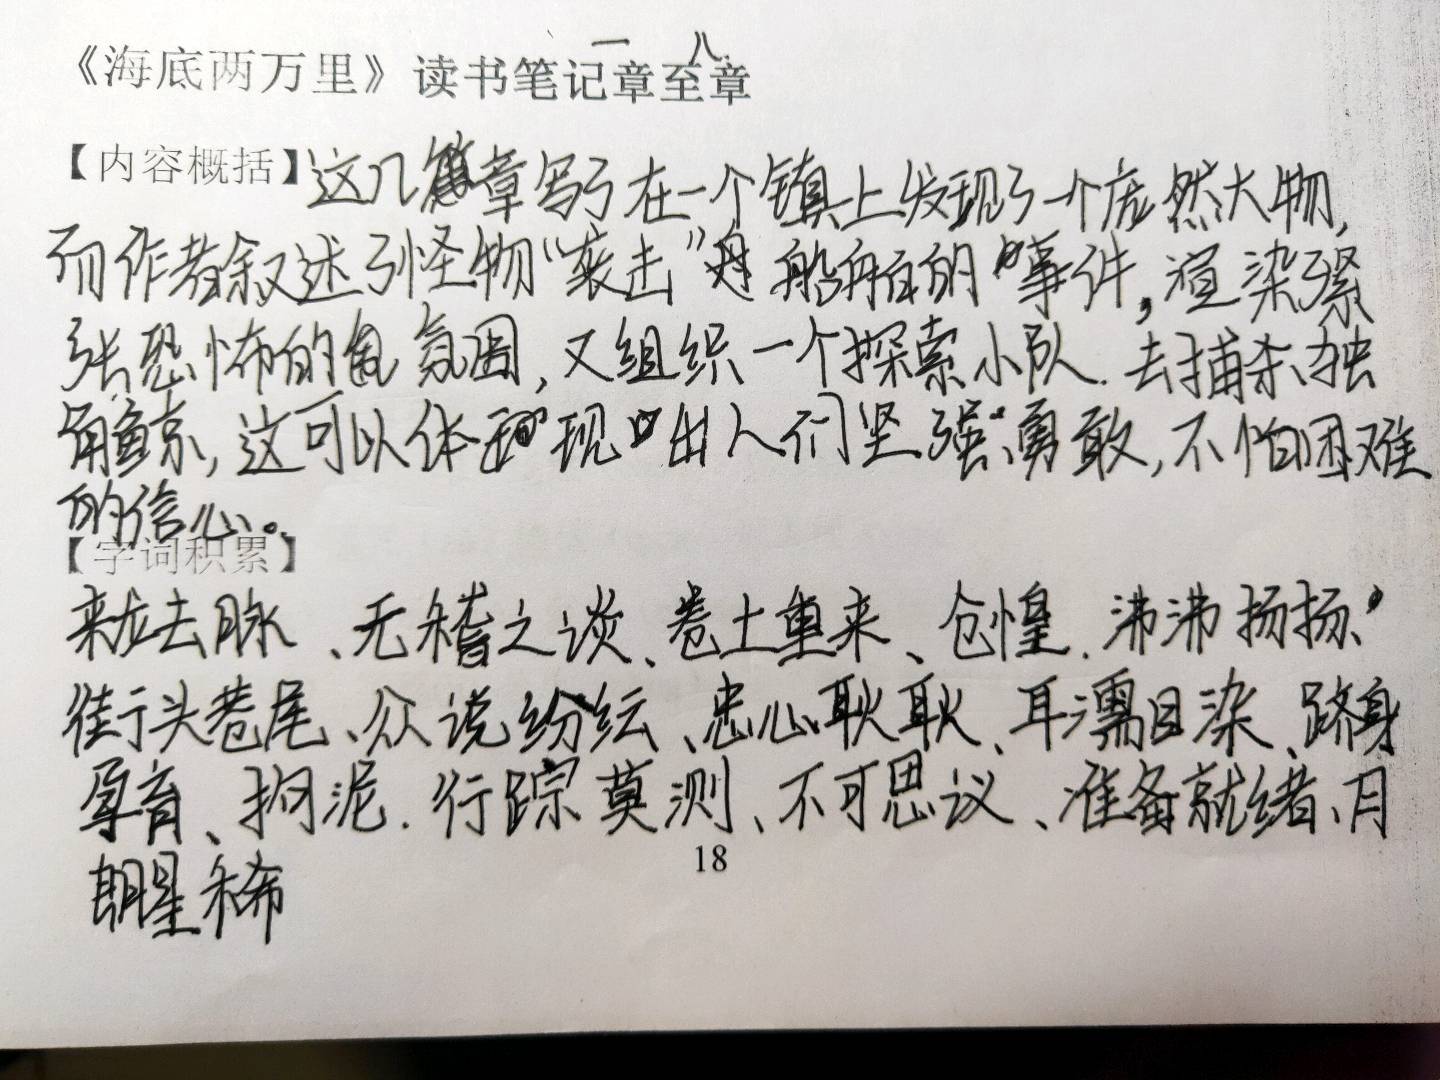 一 八
《海底两万里》读书笔记章至章
【内容概括】这几篇章写了在一个镇上发现了一个庞然大物,
而作者叙述了怪物“袭击”船舶的事件,渲染紧
张恐怖的氛围,又组织一个探索小队.去捕杀独
角鲸,这可以体现出人们坚强、勇敢,不怕困难
的信心。
【字词积累】
来龙去脉、无稽之谈、卷土重来、仓惶.沸沸扬扬、
街头巷尾、众说纷纭、忠心耿耿、耳濡目染、跻身
孕育、拘泥.行踪莫测、不可思议、准备就绪、月
明星稀
18